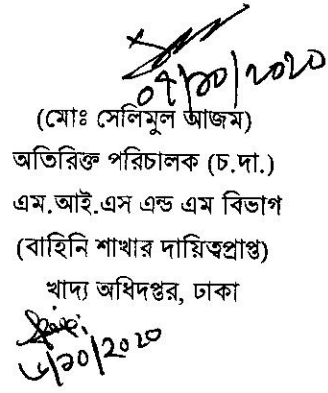 ০৭/১০/২০২০
(মোঃ সেলিমুল আজম)
অতিরিক্ত পরিচালক (চ.দা.)
এম.আই.এস এন্ড এম বিভাগ
(বাহিনি শাখার দায়িত্বপ্রাপ্ত)
খাদ্য অধিদপ্তর, ঢাকা